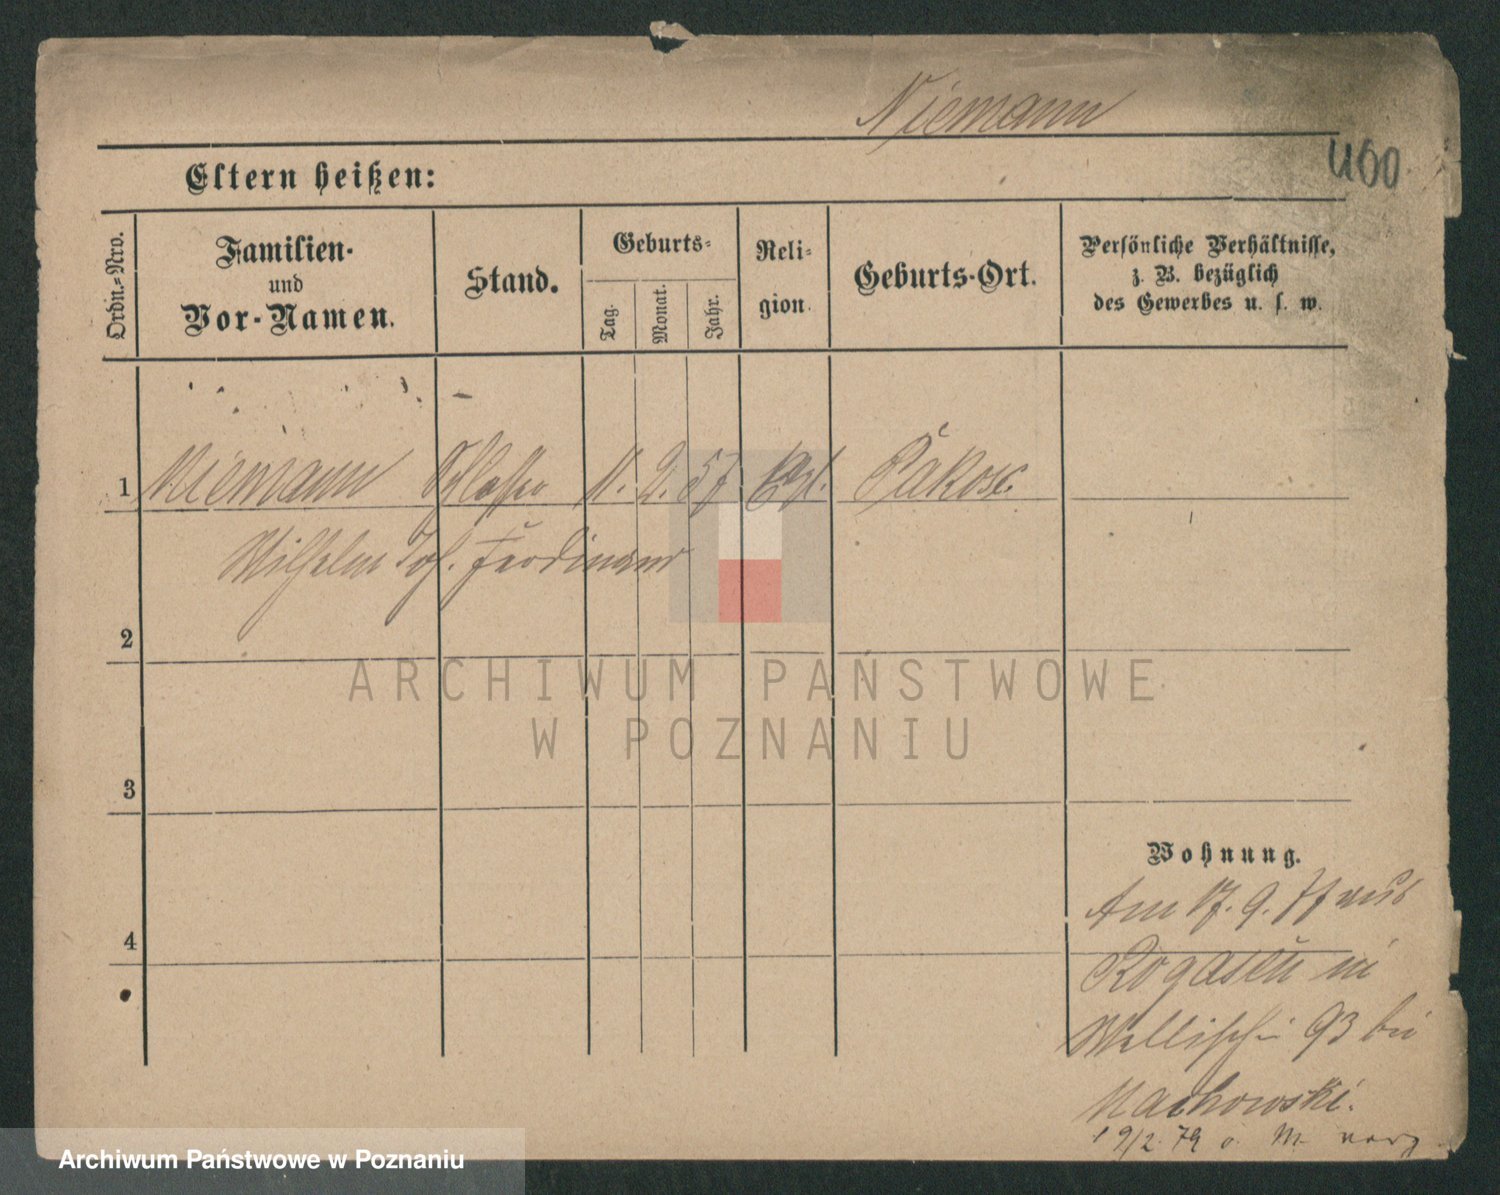 Niemann
400
Eltern heißen:
Ordn.-Nro.
Familien-
und
Vor-Namen.
Stand.
Geburts-
Tag.
Monat.
Jahr.
Reli-
gion.
Geburts-Ort.
Persönliche Verhältnisse,
z. B. bezüglich
des Gewerbes u. s. w.
1 Niemann Schlosser 11. 2. 57 Evgl. Pakosc.
Wilhelm Joh. Ferdinand
2
ARCHIWUM PAŃSTWOWE
W POZNANIU
3
Wohnung.
Am 17. 9. 77 aus
4
Rogasen in
Wallischei 93 bei
Machowski.
19/2. 79 o. M. verz
Archiwum Państwowe w Poznaniu